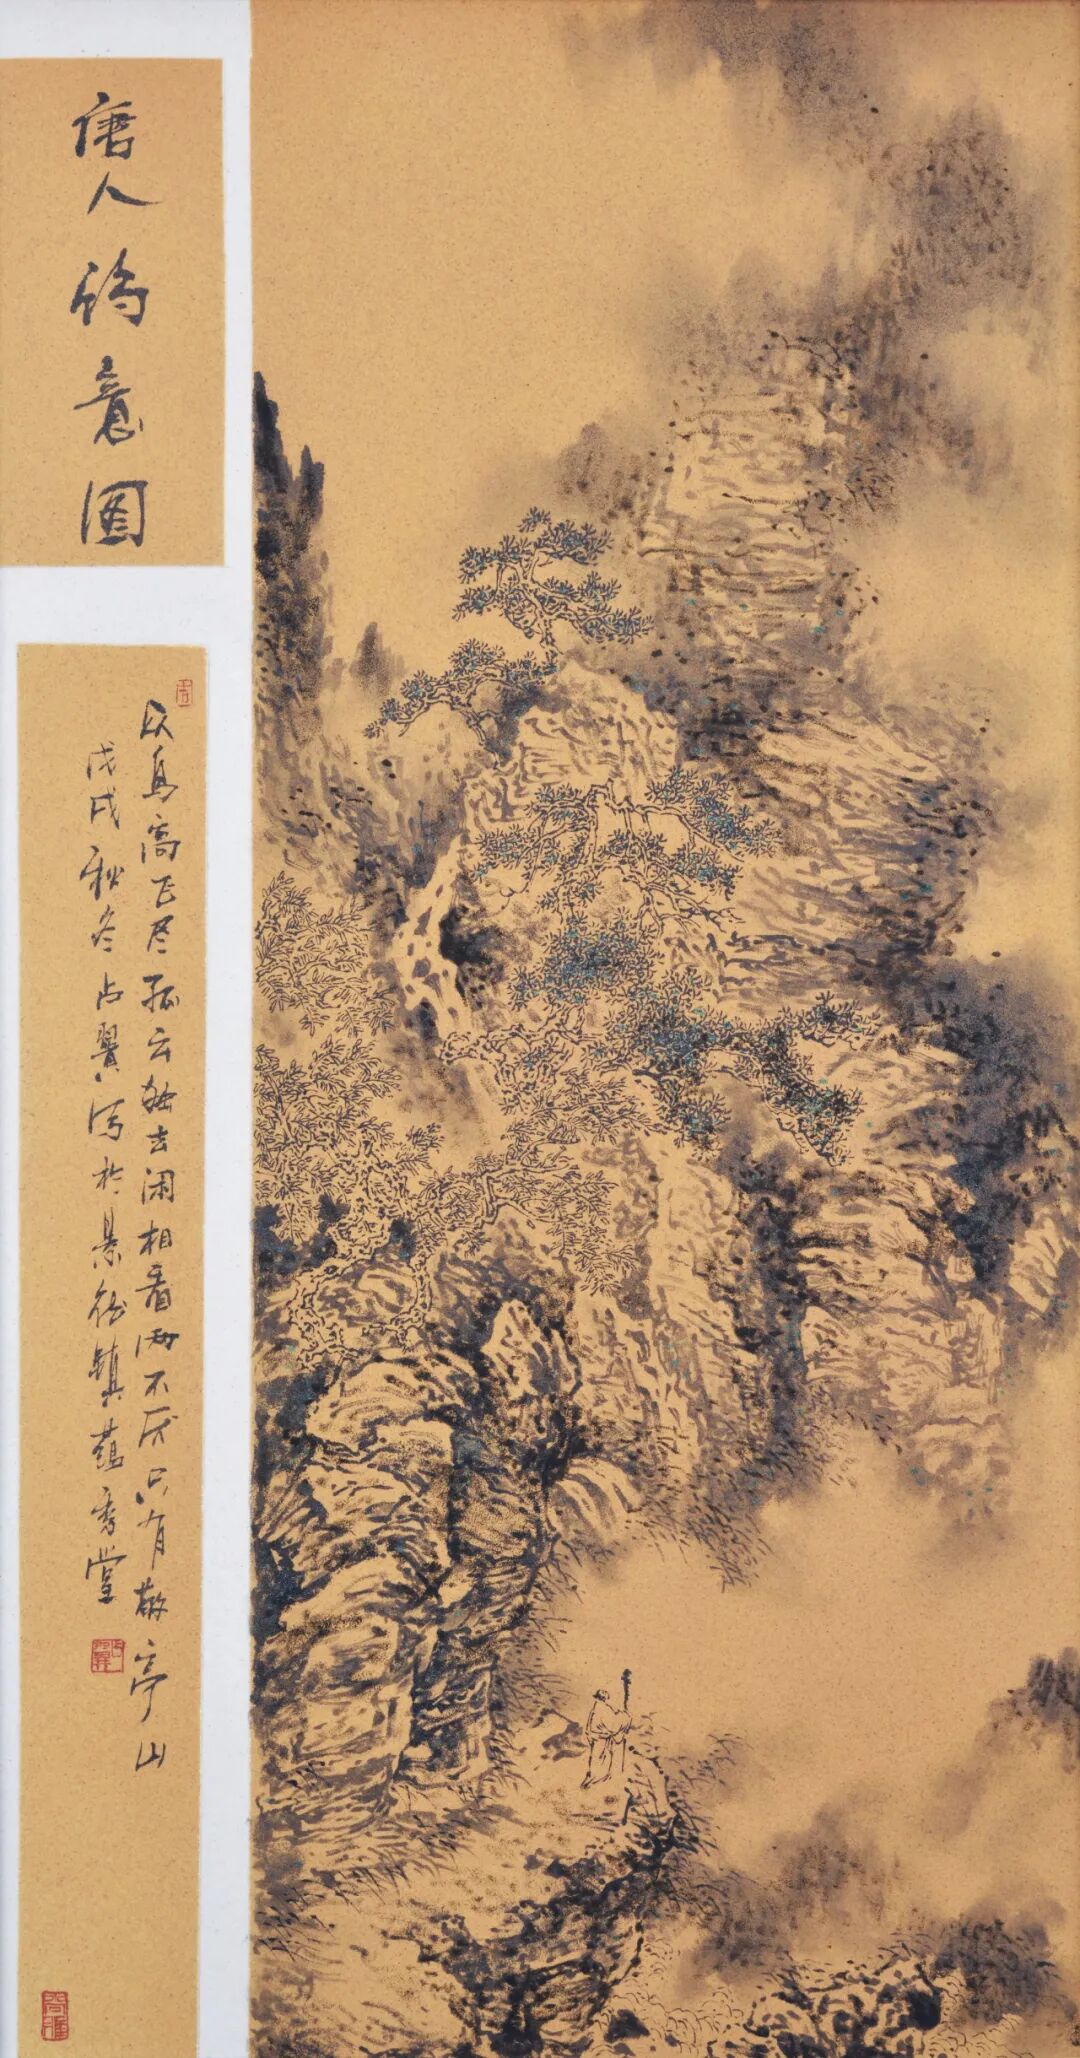 唐人诗意图
众鸟高飞尽孤云独去闲相看两不厌只有敬亭山
戊戌秋冬占翼写於景德镇蕴秀堂